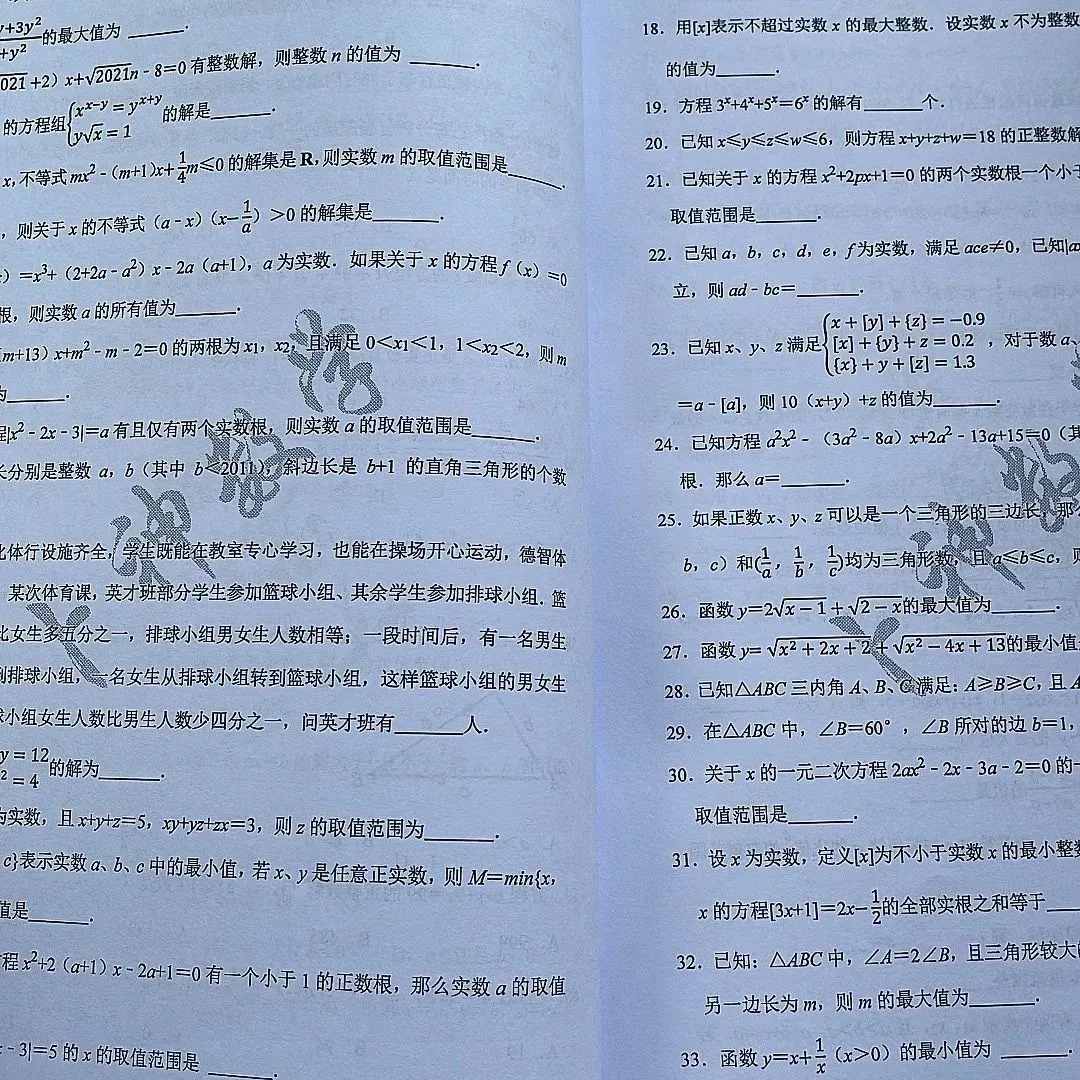 y+3y²/+y²的最大值为______.
021+2）x+√2021n-8=0有整数解，则整数n的值为______.
的方程组{x^{x-y}=y^{x+y} y√x=1的解是______.
x，不等式mx²-(m+1)x+1/4m≤0的解集是R，则实数m的取值范围是______.
，则关于x的不等式（a-x）（x-1/a）>0的解集是______.
）=x³+（2+2a-a²）x-2a（a+1），a为实数．如果关于x的方程f（x）=0
根，则实数a的所有值为______.
m+13）x+m²-m-2=0的两根为x₁，x₂，且满足0<x₁<1，1<x₂<2，则m
为______.
程|x²-2x-3|=a有且仅有两个实数根，则实数a的取值范围是______.
长分别是整数a，b（其中b<2011），斜边长是b+1的直角三角形的个数
体行设施齐全，学生既能在教室专心学习，也能在操场开心运动，德智体
某次体育课，英才班部分学生参加篮球小组、其余学生参加排球小组．篮
比女生多五分之一，排球小组男女生人数相等；一段时间后，有一名男生
到排球小组，一名女生从排球小组转到篮球小组，这样篮球小组的男女生
球小组女生人数比男生人数少四分之一，问英才班有______人.
y=12 ²=4的解为______.
为实数，且x+y+z=5，xy+yz+zx=3，则z的取值范围为______.
c}表示实数a、b、c中的最小值，若x、y是任意正实数，则M=min{x，
值是______.
程x²+2（a+1）x-2a+1=0有一个小于1的正数根，那么实数a的取值
-3|=5的x的取值范围是______.
18．用[x]表示不超过实数x的最大整数．设实数x不为整数
的值为______.
19．方程3ˣ+4ˣ+5ˣ=6ˣ的解有______个.
20．已知x≤y≤z≤w≤6，则方程x+y+z+w=18的正整数解
21．已知关于x的方程x²+2px+1=0的两个实数根一个小于
取值范围是______.
22．已知a，b，c，d，e，f为实数，满足ace≠0，已知|ax
立，则ad-bc=______.
23．已知x、y、z满足{x+[y]+{z}=-0.9 [x]+{y}+z=0.2 {x}+y+[z]=1.3，对于数a、
=a-[a]，则10（x+y）+z的值为______.
24．已知方程a²x²-（3a²-8a）x+2a²-13a+15=0（其
根．那么a=______.
25．如果正数x、y、z可以是一个三角形的三边长，那么
b，c）和(1/a，1/b，1/c)均为三角形数，且a≤b≤c，则
26．函数y=2√x-1+√2-x的最大值为______.
27．函数y=√x²+2x+2+√x²-4x+13的最小值
28．已知△ABC三内角A、B、C满足：A≥B≥C，且A
29．在△ABC中，∠B=60°，∠B所对的边b=1，
30．关于x的一元二次方程2ax²-2x-3a-2=0的一
取值范围是______.
31．设x为实数，定义[x]为不小于实数x的最小整数
x的方程[3x+1]=2x-1/2的全部实根之和等于____
32．已知：△ABC中，∠A=2∠B，且三角形较大的
另一边长为m，则m的最大值为______.
33．函数y=x+1/x（x>0）的最小值为______.